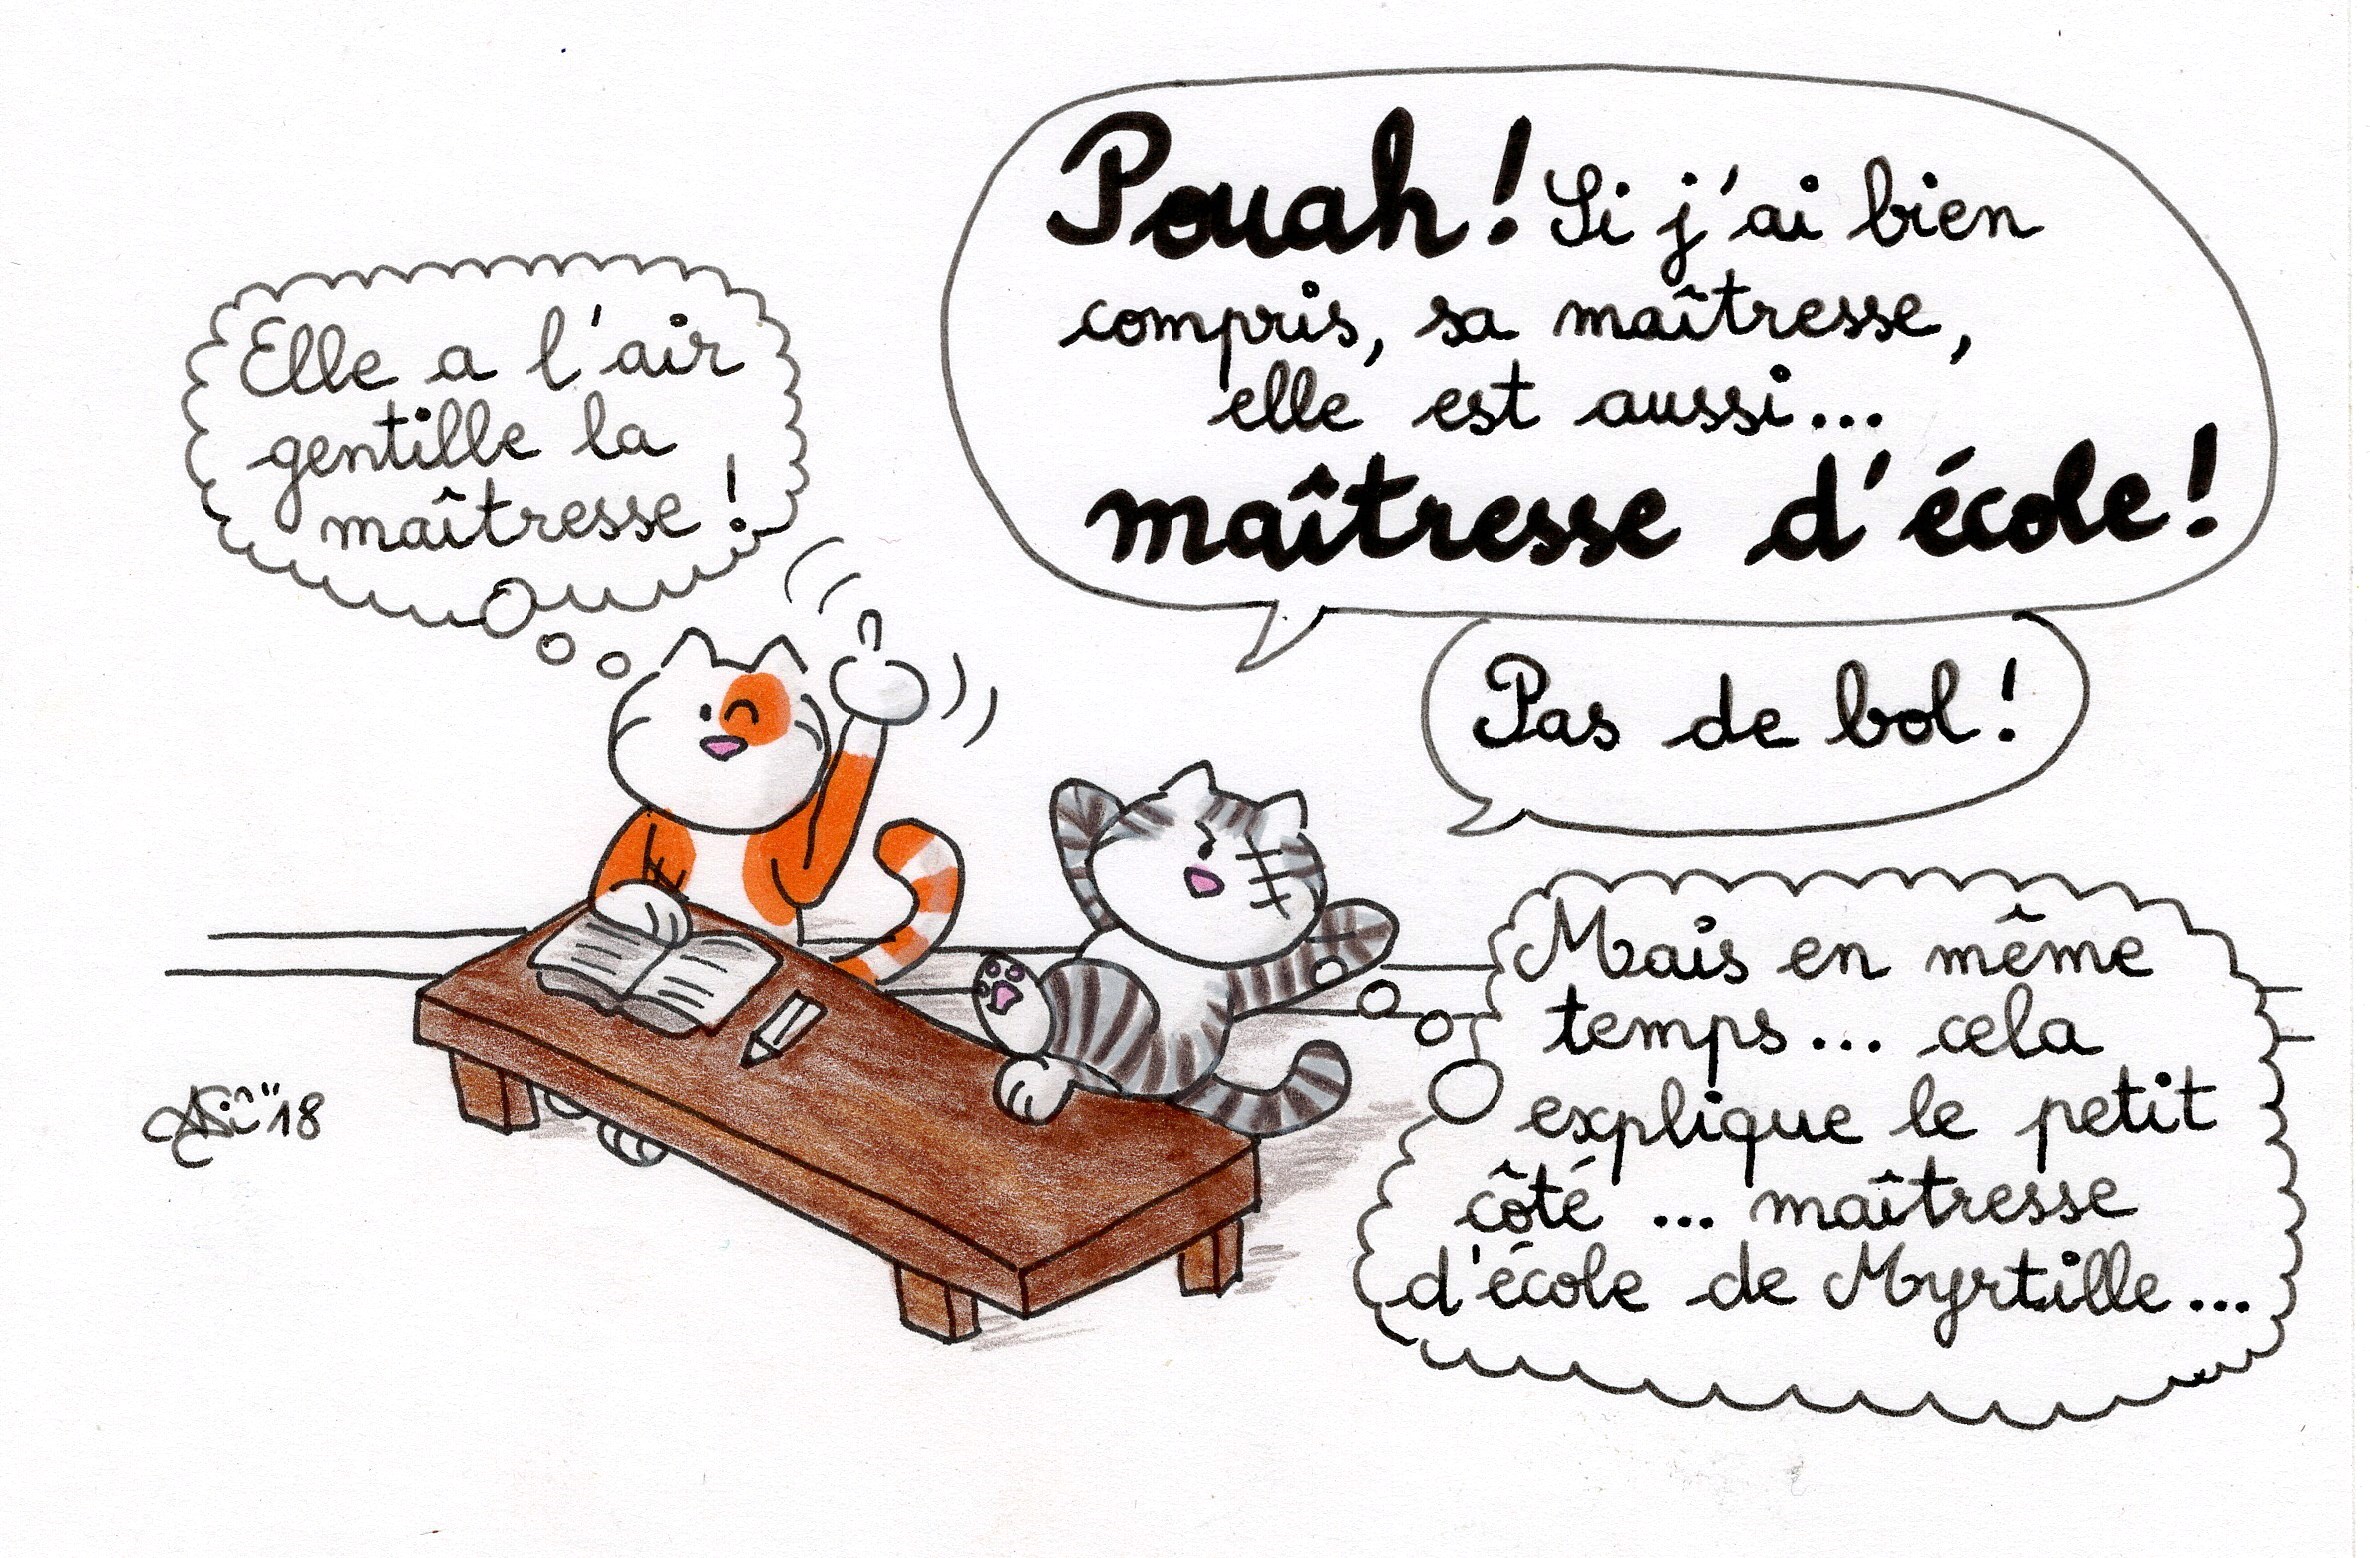 Elle a l'air
gentille la
maîtresse !
Pouah ! Si j'ai bien
compris, sa maîtresse,
elle est aussi...
maîtresse d'école !
Pas de bol !
Mais en même
temps... cela
explique le petit
côté ... maîtresse
d'école de Myrtille...